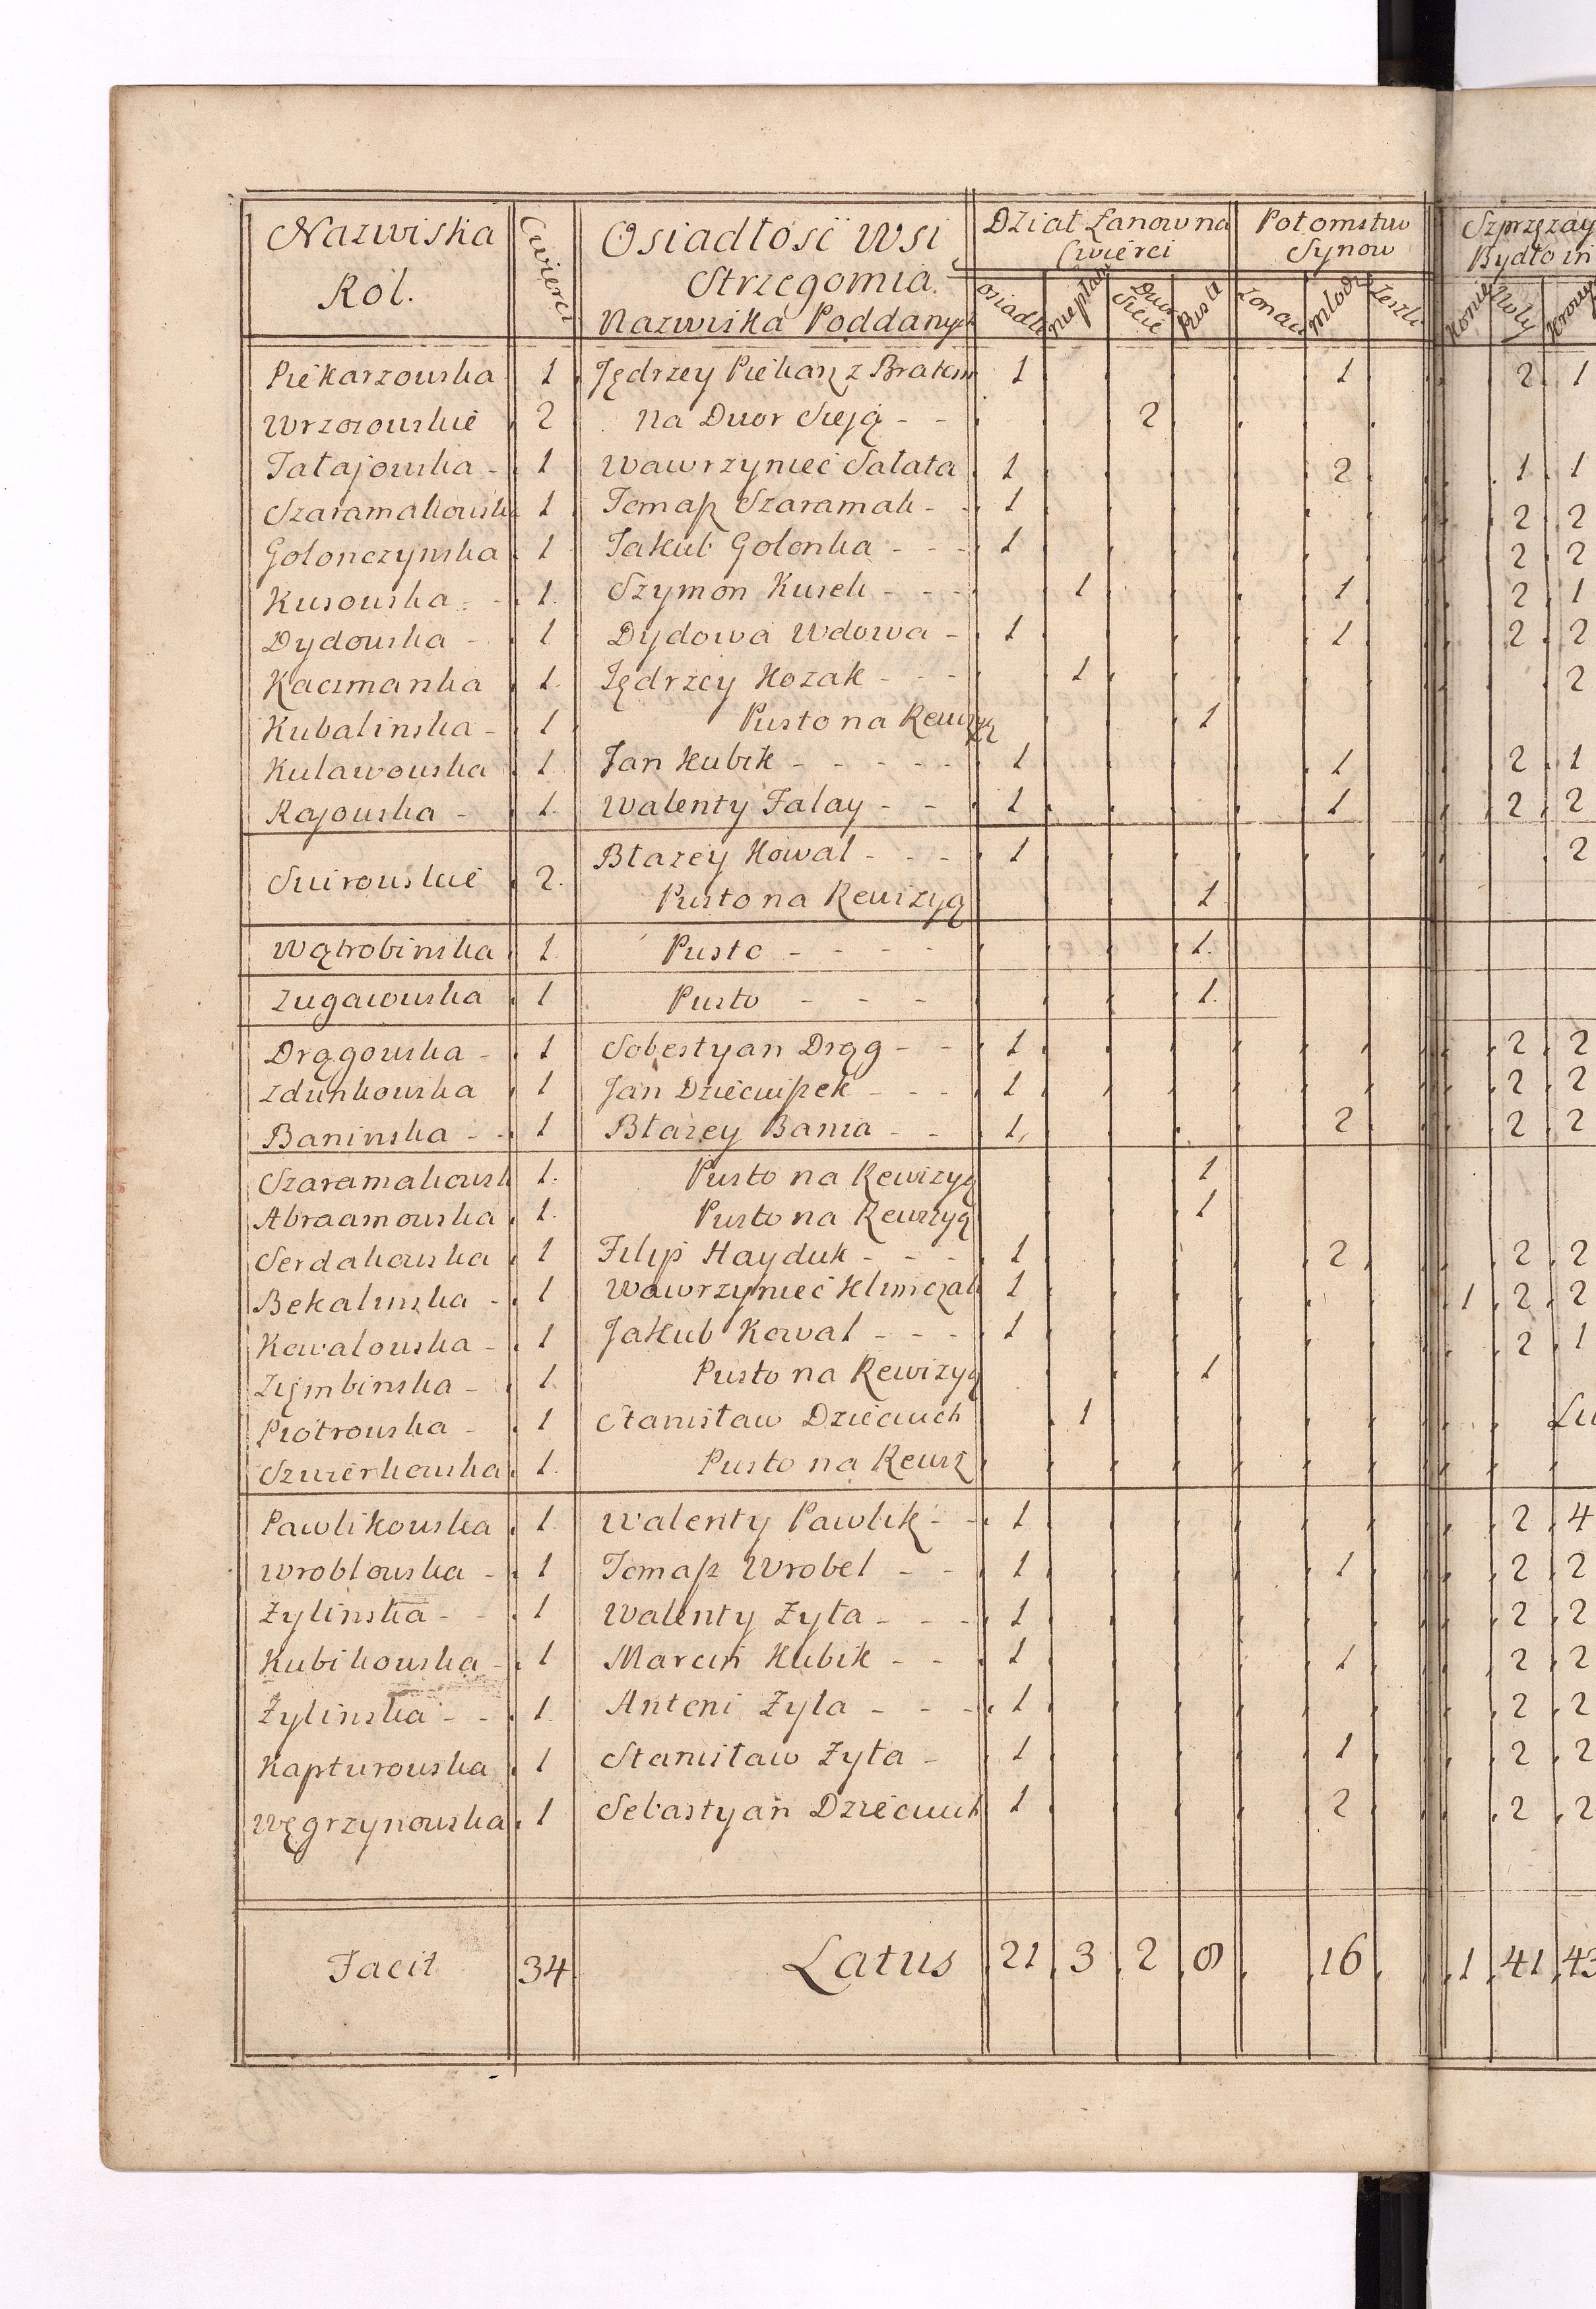 Nazwiska Ról. Cwierci Osiadłość Wsi Strzegomia. Nazwiska Poddanych Dział Łanow na Cwierci Potomstwo Synow Szprzężay Bydło in
osiadła niepłau Dwor Sieie Pusta żonau młodz Zeszli Konie Woły Krowy
Piekarzowska 1 Jędrzey Piekarz z Bratem 1 1 2 1
Wrzosowskie 2 na Dwor Sieją - - 2
Tatajowska - 1 Wawrzyniec Sałata 1 2 1 1
Szaramakowska 1 Tomasz Szaramak - 1 2 2
Golonczynska 1 Jakub Golonka - - - 1 2 2
Kusowska - 1 Szymon Kusek - - - 1 1 2 1
Dydowska - 1 Dydowa Wdowa - 1 1 2 2
Kacmarska 1 Jędrzey Kozak - - - 1 2
Kubalinska - 1 Pusto na Rewizyą 1
Kulawowska 1 Jan Kubik - - - - - 1 1 2 1
Rajowska - 1 Walenty Falay - - 1 1 2 2
Swirowskie 2 Błazey Kowal - - - 1 2
Pusto na Rewizyą 1
Wątrobinska 1 Pusto - - - - 1
Zugaiowska 1 Pusto - - - 1
Drągowska - 1 Sobestyan Drąg - - 1 2 2
Zdunkowska 1 Jan Dzieciuszek - - - 1 2 2
Baninska - - 1 Błazey Bania - - 1 2 2 2
Szaramakowsk 1 Pusto na Rewizyą 1
Abraamowska 1 Pusto na Rewizyą 1
Serdakowska 1 Filip Hayduk - - - 1 2 2 2
Bekalinska - 1 Wawrzyniec Klimczak 1 1 2 2
Kowalowska - 1 Jakub Kowal - - - 1 2 1
Zięmbinska - 1 Pusto na Rewizyą 1
Piotrowska - 1 Stanisław Dzieciuch 1
Szwierkowska 1 Pusto na Rewiz
Pawlikowska 1 Walenty Pawlik - - 1 2 4
Wroblowska - 1 Tomasz Wrobel - - 1 1 2 2
Żylinska - - 1 Walenty Żyła - - - 1 2 2
Kubikowska - 1 Marcin Kubik - - 1 1 2 2
Żylinska - - 1 Antoni Żyła - - - 1 2 2
Kapturowska 1 Stanisław Żyła - 1 1 2 2
Węgrzynowska 1 Sebastyan Dzieciuch 1 2 2 2
Facit 34 Latus 21 3 2 8 16 1 41 43